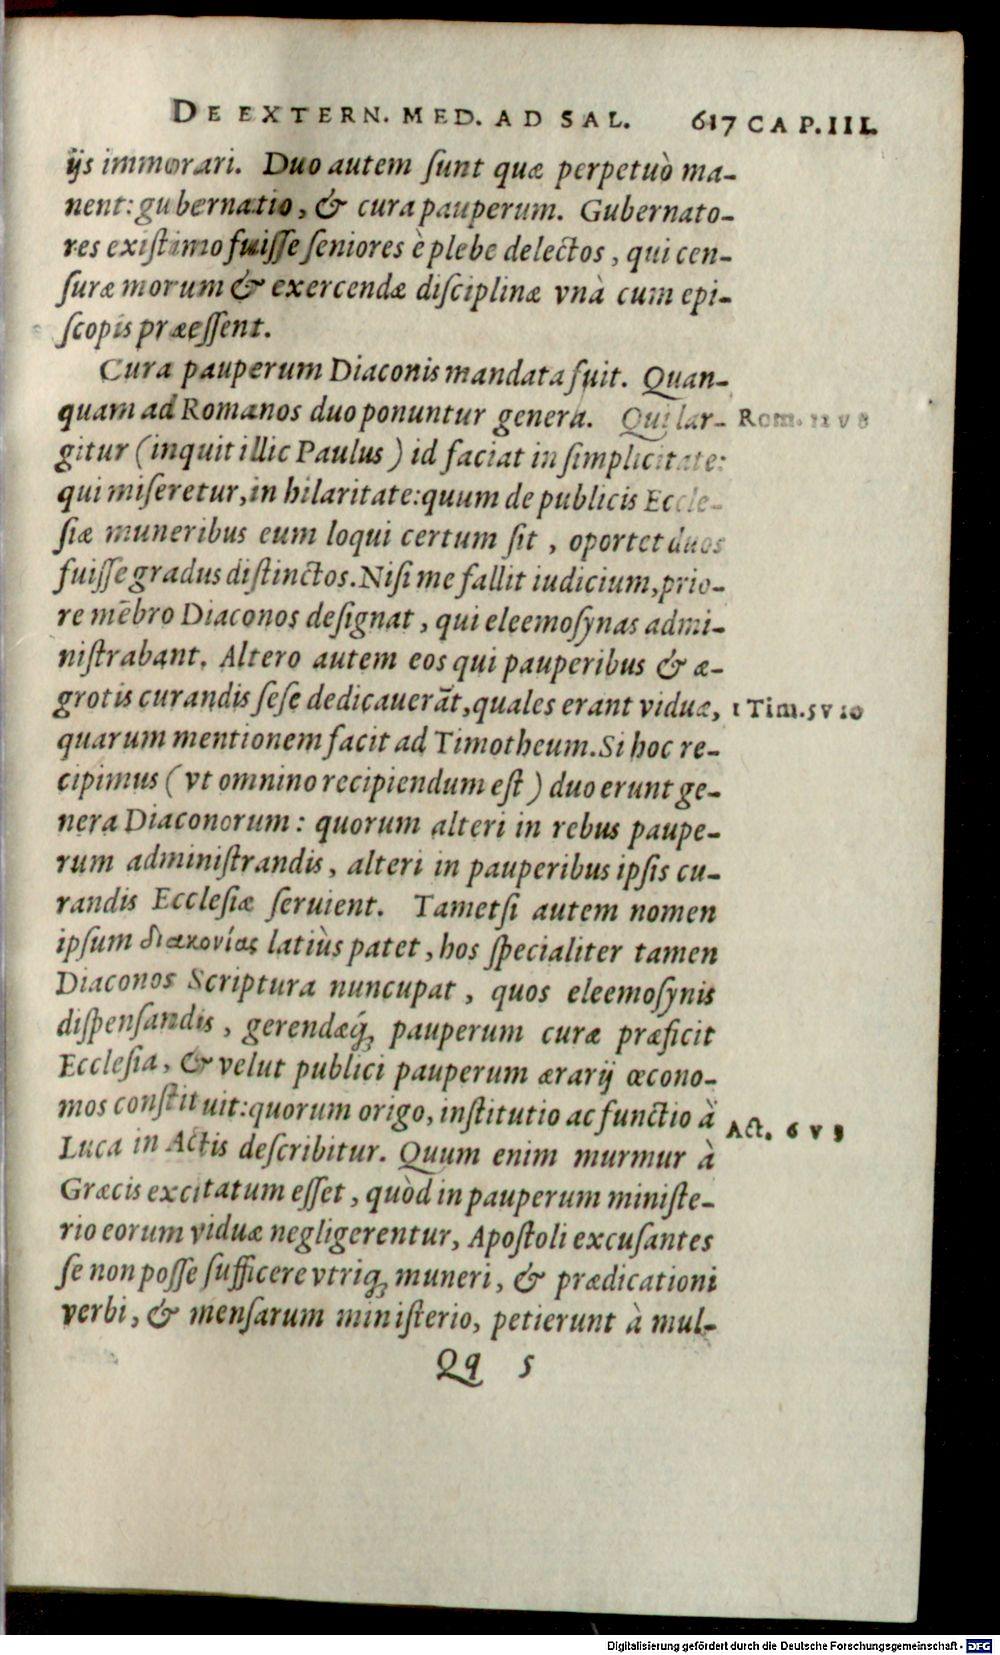 DE EXTERN. MED. AD SAL. 617 CAP. III.
ijs immorari. Duo autem ſunt quæ perpetuò ma-
nent: gubernatio, & cura pauperum. Gubernato-
res exiſtimo fuiſſe ſeniores è plebe delectos, qui cen-
ſuræ morum & exercendæ diſciplinæ vnà cum epi-
ſcopis præeſſent.
Cura pauperum Diaconis mandata fuit. Quan-
quam ad Romanos duo ponuntur genera. Qui lar- Rom. 12 v 8
gitur (inquit illic Paulus) id faciat in ſimplicitate:
qui miſeretur, in hilaritate: quum de publicis Eccle-
ſiæ muneribus eum loqui certum ſit, oportet duos
fuiſſe gradus diſtinctos. Niſi me fallit iudicium, prio-
re mēbro Diaconos deſignat, qui eleemoſynas admi-
niſtrabant. Altero autem eos qui pauperibus & æ-
grotis curandis ſeſe dedicauerāt, quales erant viduæ, 1 Tim. 5 v 10
quarum mentionem facit ad Timotheum. Si hoc re-
cipimus (vt omnino recipiendum eſt) duo erunt ge-
nera Diaconorum: quorum alteri in rebus paupe-
rum adminiſtrandis, alteri in pauperibus ipſis cu-
randis Eccleſiæ ſeruient. Tametſi autem nomen
ipſum διακονίας latiùs patet, hos ſpecialiter tamen
Diaconos Scriptura nuncupat, quos eleemoſynis
diſpenſandis, gerendæq́; pauperum curæ præficit
Eccleſia, & velut publici pauperum ærarij œcono-
mos conſtituit: quorum origo, inſtitutio ac functio à
Luca in Actis deſcribitur. Quum enim murmur à Act. 6 v 3
Græcis excitatum eſſet, quòd in pauperum miniſte-
rio eorum viduæ negligerentur, Apoſtoli excuſantes
ſe non poſſe ſufficere vtriq; muneri, & prædicationi
verbi, & menſarum miniſterio, petierunt à mul-
Qq 5
Digitalisierung gefördert durch die Deutsche Forschungsgemeinschaft - DFG